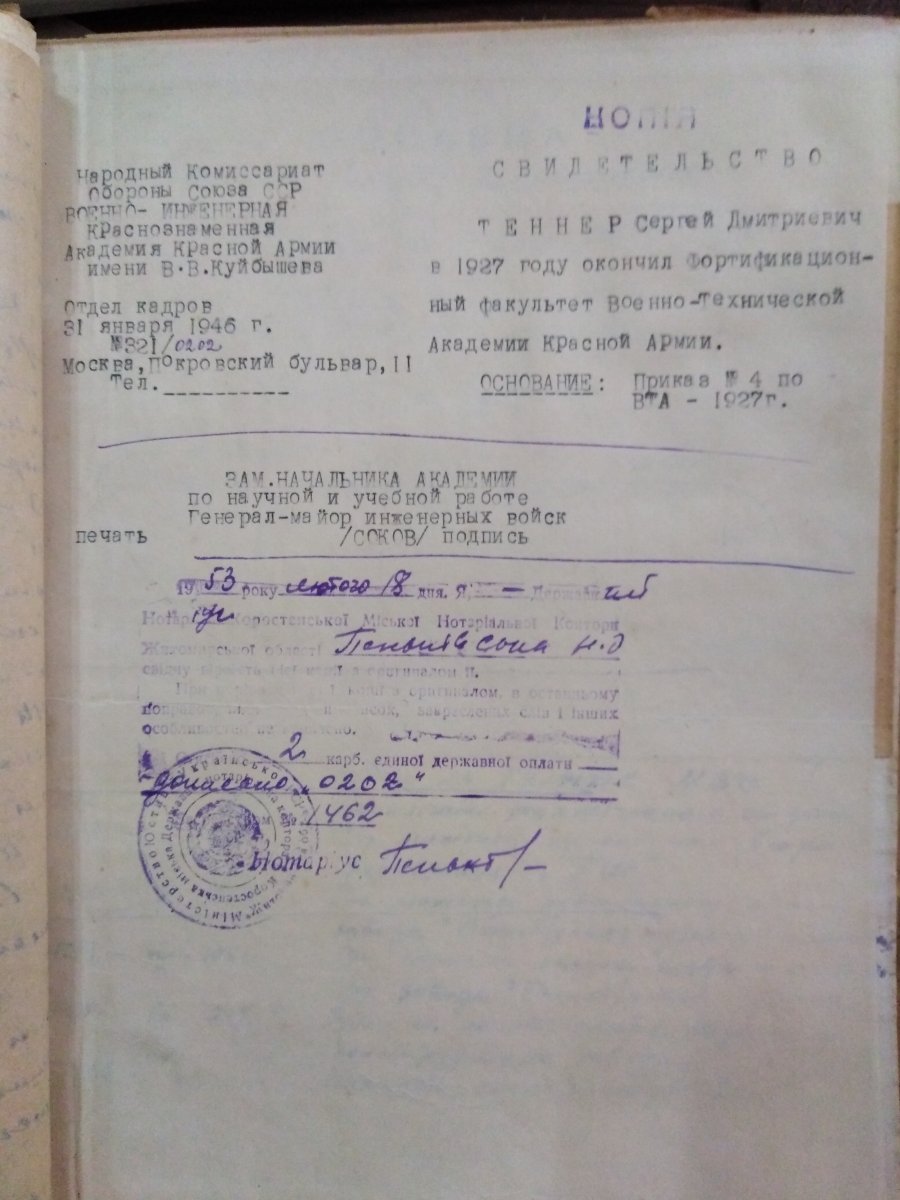 КОПІЯ
Народный Комиссариат
Обороны Союза ССР
ВОЕННО- ИНЖЕНЕРНАЯ
Краснознаменная
Академия Красной Армии
имени В.В.Куйбышева
Отдел кадров
31 января 1946 г.
№321/0202
Москва,Покровский бульвар,11
Тел.__________
СВИДЕТЕЛЬСТВО
ТЕННЕР Сергей Дмитриевич
в 1927 году окончил Фортификацион-
ный факультет Военно-Технической
Академии Красной Армии.
ОСНОВАНИЕ: Приказ № 4 по
ВТА - 1927г.
ЗАМ.НАЧАЛЬНИКА АКАДЕМИИ
по научной и учебной работе
Генерал-майор инженерных войск
печать /СОКОВ/ подпись
1953 року лютого 18 дня. Я, — Державн
Коростенської Міської Нотаріальної Контори
Житомирської області
При копії з оригіналом, в останньому
закреслених слів і інших
2 карб. єдиної державної оплати
дописано „0202"
1462
Нотаріус